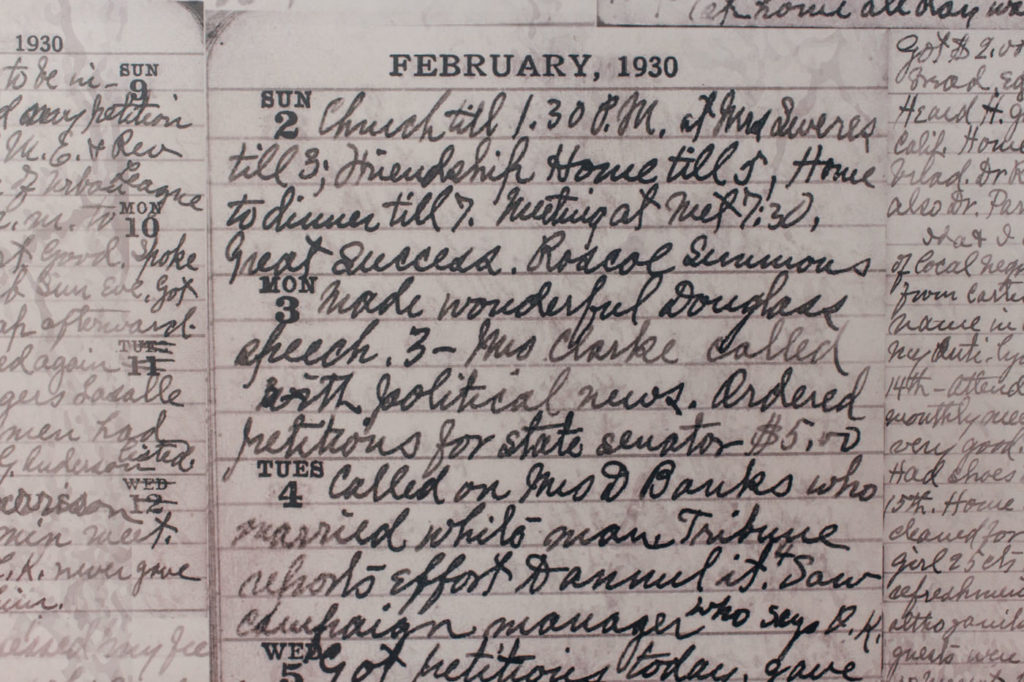 at home all day
1930
to be in-
SUN
9
my petition
M. E. & Rev
of Urban League
MON
10
d. m. to
Good. Spoke
Sun Eve. Got
afterward.
TUES
11
ed again
gers Lasalle
men had
G. Anderson listed
WED
12
min meet.
K. never gave
him.
my
FEBRUARY, 1930
SUN
2
Church till 1.30 P.M. at Mrs
till 3; Friendship Home till 5, Home
to dinner till 7. Meeting at Met 7:30,
Great Success. Roscoe Simmons
MON
3
made wonderful Douglass
speech. 3 - Mrs Clarke called
with political news. Ordered
petitions for state senator $5.00
TUES
4
Called on Mrs D Banks who
married white man. Tribune
reports effort to annul it. Saw
campaign manager who says D. K.
WED
5
Got petitions today, gave
Got $2.00
Bread, Eg
Heard H. G
Calif. Home
Dr. R
also Dr. Par
that I
of local Negr
from Carter
name in
my Anti-Ly
14th - Attend
monthly mee
very good.
Had shoes
15th. Home
cleaned for
girl 25 cts
refreshmen
altho famil
guests were